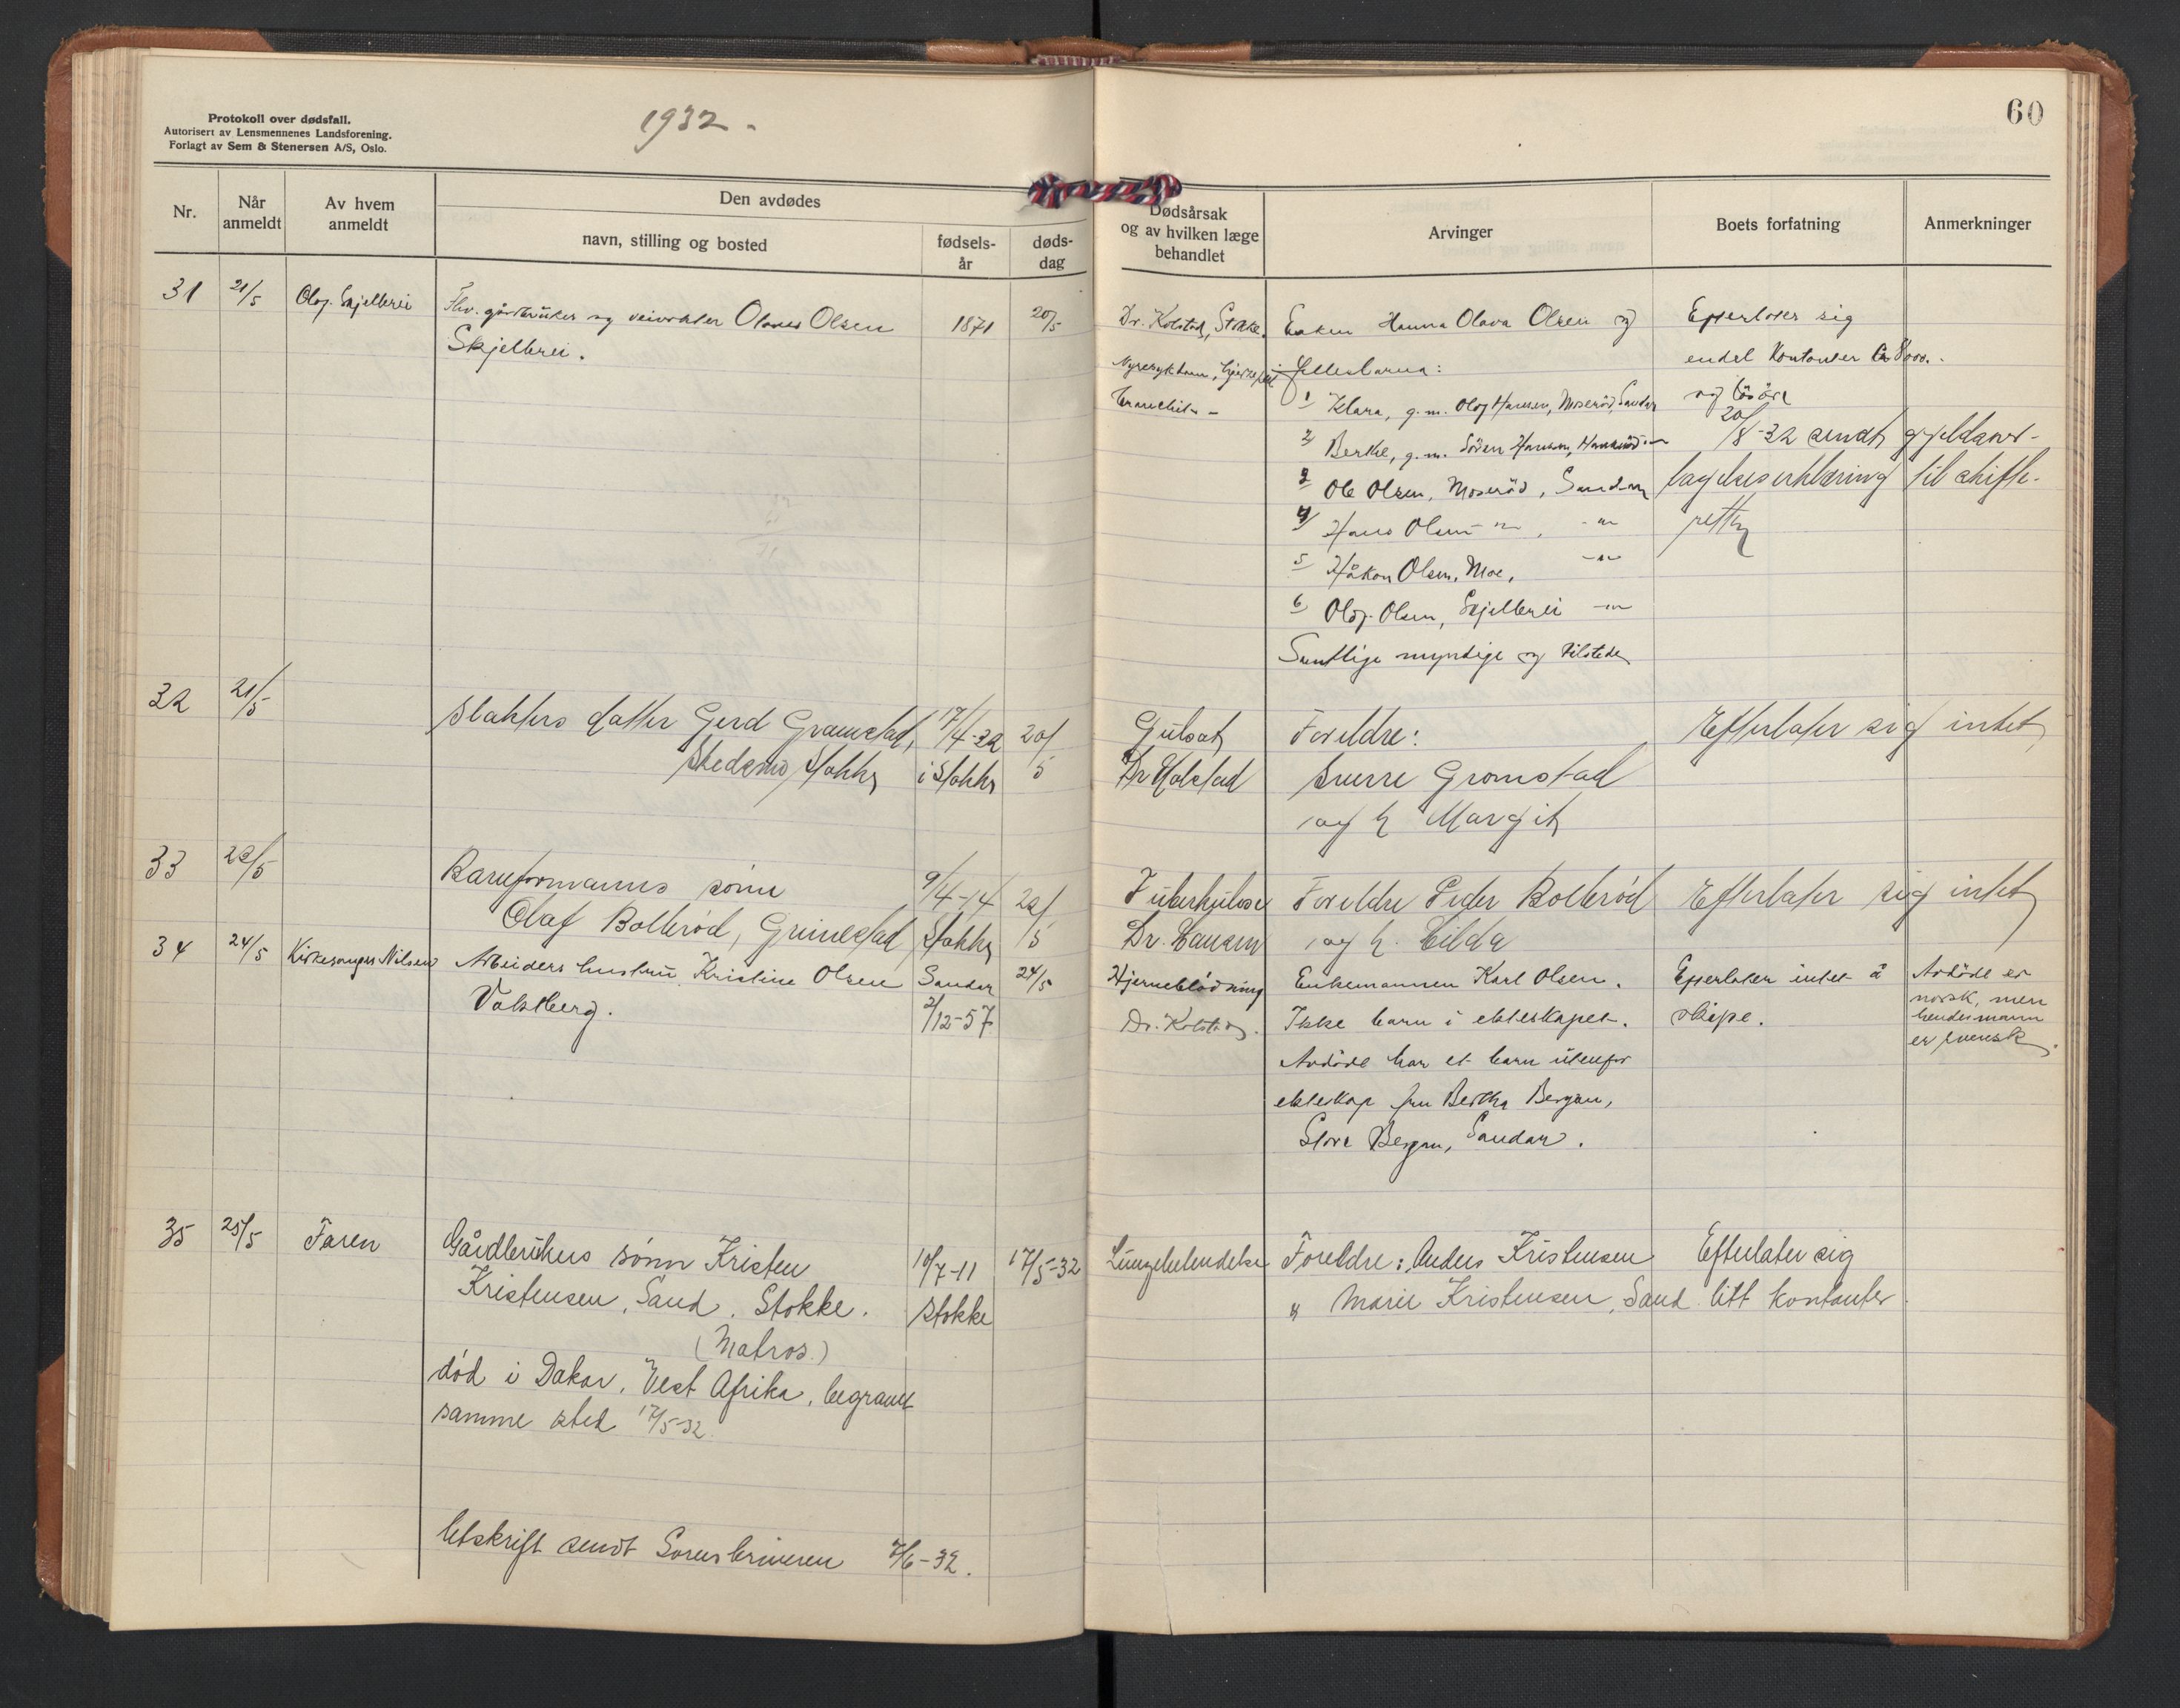 Protokoll over dødsfall.
Autorisert av Lensmennenes Landsforening.
Forlagt av Sem & Stenersen A/S, Oslo.
1932.
60
Nr.
Når anmeldt
Av hvem anmeldt
Den avdødes
navn, stilling og bosted
fødselsår
dødsdag
Dødsårsak
og av hvilken læge
behandlet
Arvinger
Boets forfatning
Anmerkninger
31 21/5 Olaf Skjellbrei
Fhv. gårdbruker og veivokter Olaves Olsen 1871 20/5
Skjelbrei.
Dr. Kolstad, Stokke.
Nyresykdom, hjertefeil
bronchit
Enken Hanna Olava Olsen og
fellesbarna:
1 Klara, g.m. Olaf Hansen, Moserød, Sandar
2 Berthe, g.m. Søren Hansen,
3 Ole Olsen, Moserød, Sandar
4/ Hans Olsen
5 Håkon Olsen, Moe,
6 Olaf Olsen, Skjelbrei
Samtlige myndige og tilstede
Efterlater sig
endel kontanter ca 8000.-
og løsøre
20/8-32 sendt gjeldsovertagelseserklæring til skifteretten
32 21/5
Slakters datter Gerd Gramstad, 17/4-32 20/5
Skedsmo, Stokke i Stokke
Gulsot
Dr Kolstad
Foreldre:
Sverre Gromstad
og h. Margit
Efterlater sig intet
33 22/5
Baneformanns sønn 9/4-14 22/5
Olaf Bollerød, Grimestad Stokke
Tuberkulose
Dr. Hansen
Foreldre Peder Bollerød
og h. Hilda
Efterlater sig intet
34 24/5 Kirkesanger Nilsen
Arbeiders hustru Kristine Olsen Sandar 24/5
Valberg. 2/12-57
Hjerneblødning
Dr. Kolstad.
Enkemannen Karl Olsen.
Ikke barn i ekteskapet.
Avdøde har et barn utenfor
ekteskap fru Bertha Bergan,
Store Bergan, Sandar.
Efterlater intet å
skifte.
Avdøde er
norsk, men
hendes mann
er svensk.
35 25/5 Faren
Gårdbrukers sønn Kristen 10/7-11 17/5-32
Kristensen, Sand, Stokke. Stokke
(Matros.)
død i Dakar, Vest Afrika, begravet
samme sted 17/5-32.
Lungebetendelse
Foreldre: Anders Kristensen
" Marie Kristensen, Sand
Efterlater sig
litt kontanter
Utskrift sendt Sorenskriveren 7/6-32.